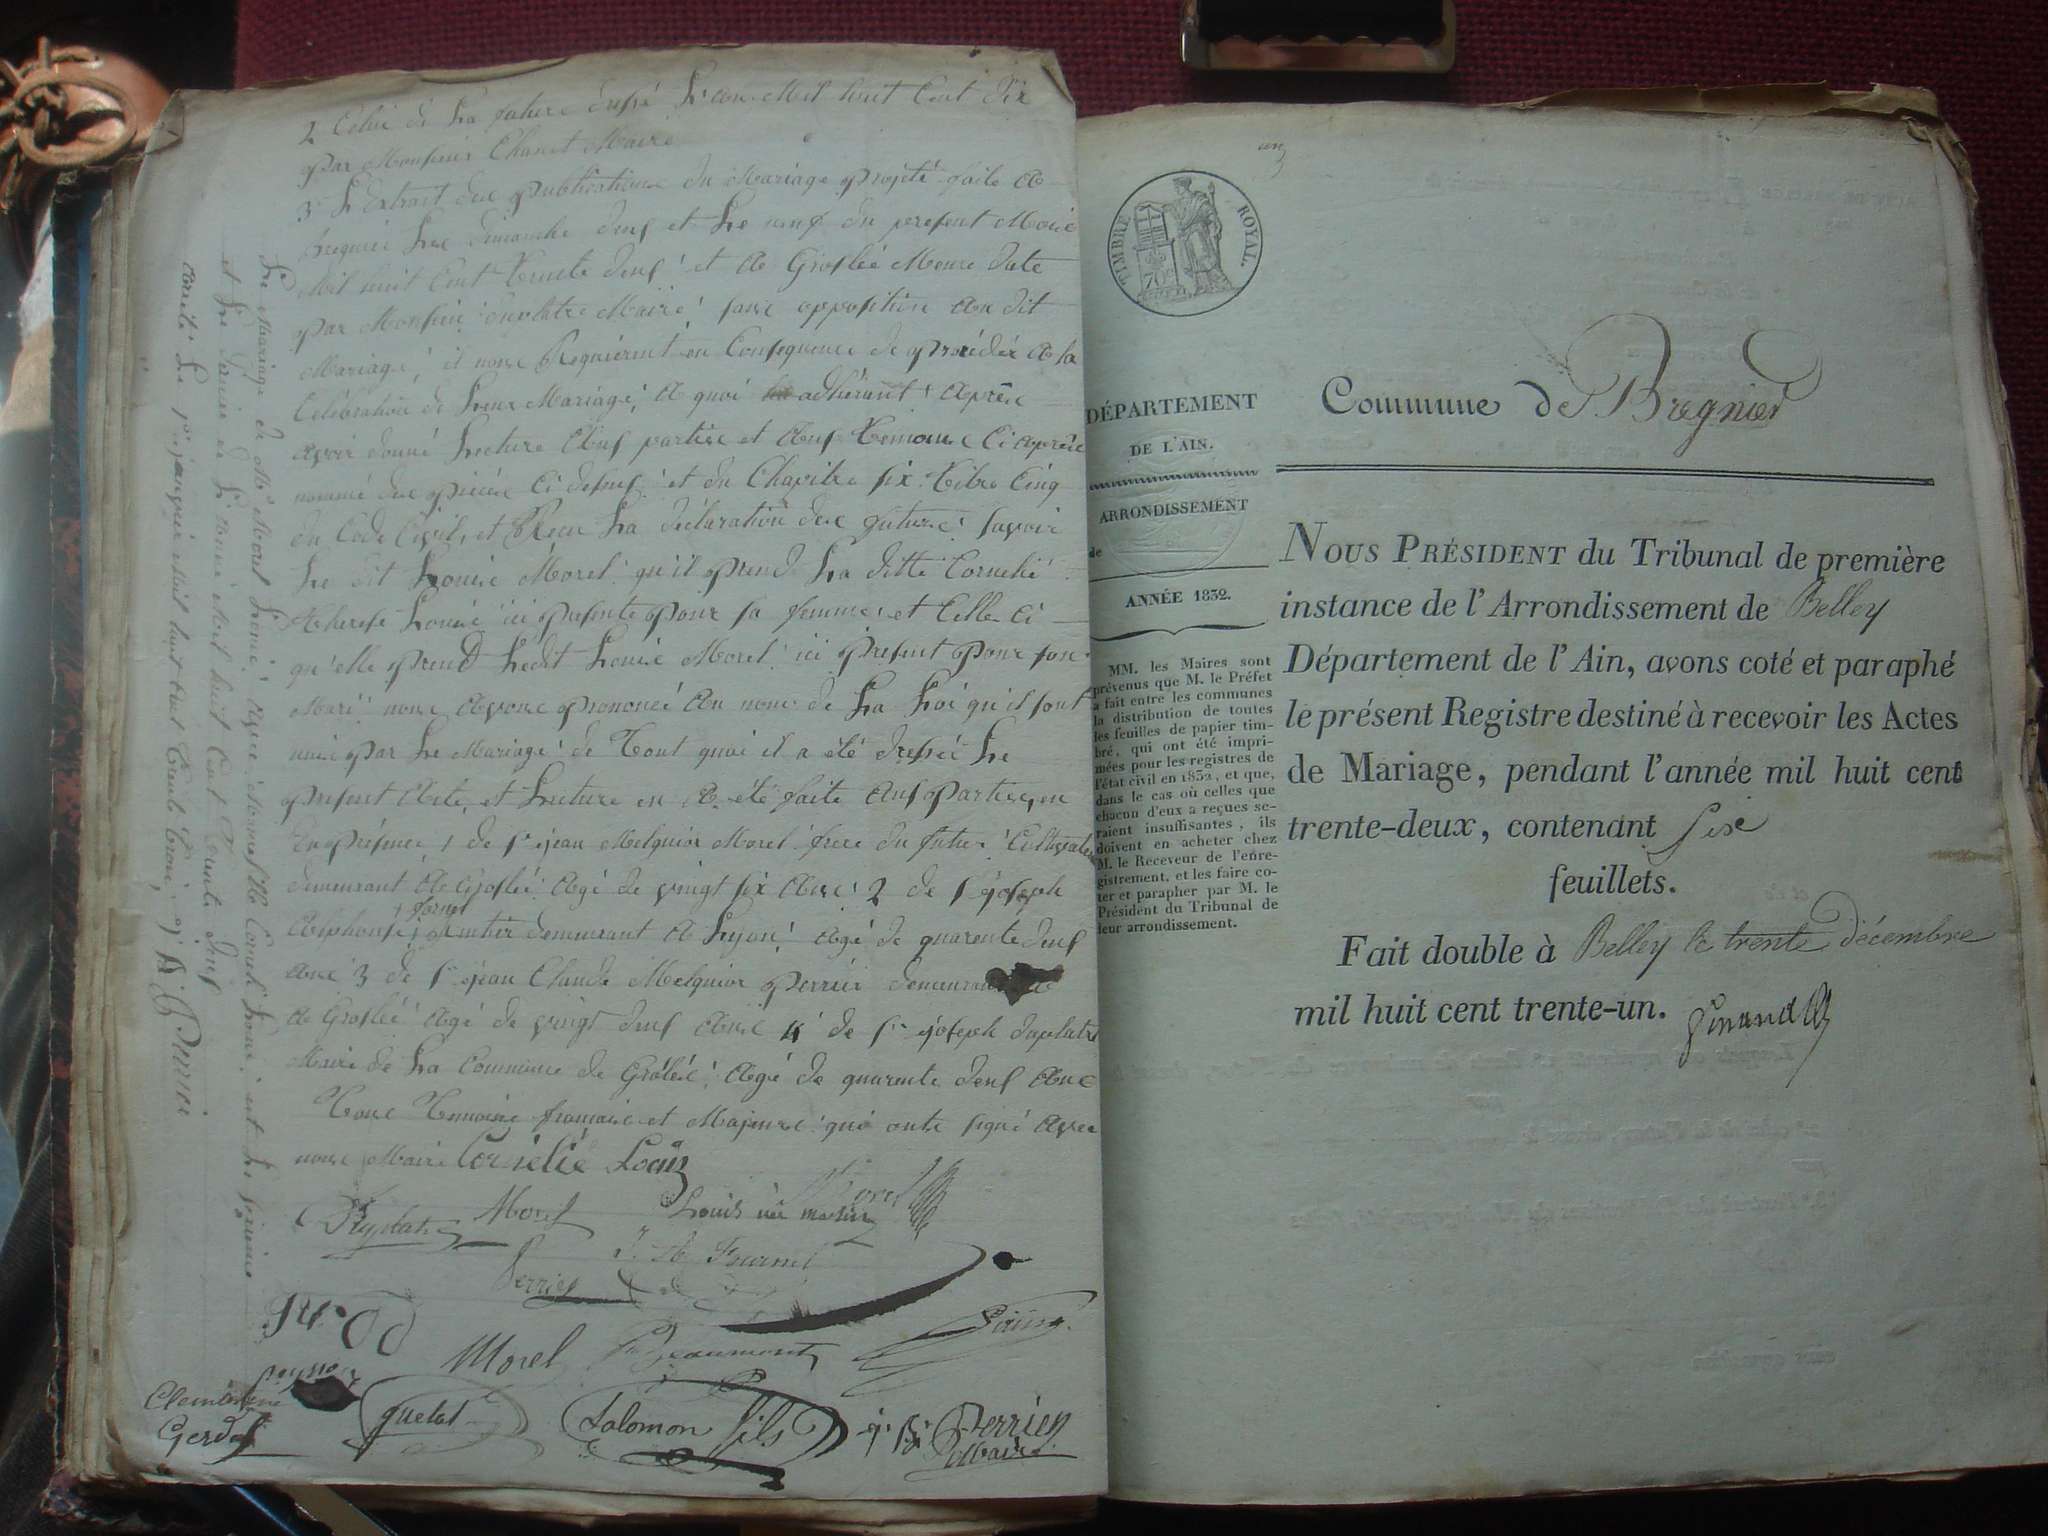 2 Celui de La future dressé L'an Mil huit Cent dix
par Monsieur Chanet Maire
3° L'Extrait des publications du Mariage projeté faite a
Bregnier Les dimanche deux et Le neuf du present Mois
Mil huit Cent Trente deux et a Groslée Meme date
par Monsieur Maire sans opposition au dit
Mariage, et nous Requierent en Consequence de proceder a la
Celebration de Leur Mariage, a quoi adhérant après
avoir donné Lecture aux parties et aux Temoins Ci après
nommé des pieces Ci dessus et du Chapitre six Titre Cinq
du Code Civil, et Recu La déclaration des futurs savoir
Le dit Louis Morel qu'il prend La ditte Cornelié
Therese Louis ici presente pour sa femme et Celle Ci
qu'elle prend Ledit Louis Morel ici present pour son
Mari nous avons prononcé au nom de La Loi qu'il sont
unis par Le Mariage de Tout quoi il a été dressé Le
present acte, et Lecture en a été faite aux Parties, en
En présence 1 de Sr jean Melquior Morel frere du futur Cultivateur
demeurant a Groslée agé de vingt six ans 2 de Sr joseph
Alphonse rentier demeurant a agé de quarente deux
ans 3 de Sr jean Claude Melquior Perrier demeurant
a Groslée agé de vingt deux ans 4 de Sr joseph
Maire de La Commune de Groleé, agé de quarente deux ans
Tous Temoins francais et Majeurs qui onts signé avec
nous Maire Cornélié Louis
Morel Louis née
Perrier
Morel Beaumont
Clementine
quetat Salomon fils j. B. Perrier
Maire
Le Mariage de Mr Morel Louis avec Mademoiselle Corneli Louis est Le
et Le Dernier de L'année Mil huit Cent Trente deux
Le 1er janvier Mil huit cent Trente Trois, j. B. Perrier
TIMBRE ROYAL.
70c
DÉPARTEMENT
DE L'AIN.
ARRONDISSEMENT
de
ANNÉE 1832.
MM. les Maires sont
prévenus que M. le Préfet
a fait entre les communes
la distribution de toutes
les feuilles de papier tim-
bré, qui ont été impri-
mées pour les registres de
l'état civil en 1832, et que,
dans le cas où celles que
chacun d'eux a reçues se-
raient insuffisantes, ils
doivent en acheter chez
M. le Receveur de l'enre-
gistrement, et les faire co-
ter et parapher par M. le
Président du Tribunal de
leur arrondissement.
Commune de Bregnier
NOUS PRÉSIDENT du Tribunal de première
instance de l'Arrondissement de Belley
Département de l'Ain, avons coté et paraphé
le présent Registre destiné à recevoir les Actes
de Mariage, pendant l'année mil huit cent
trente-deux, contenant six
feuillets.
Fait double à Belley le trente décembre
mil huit cent trente-un.